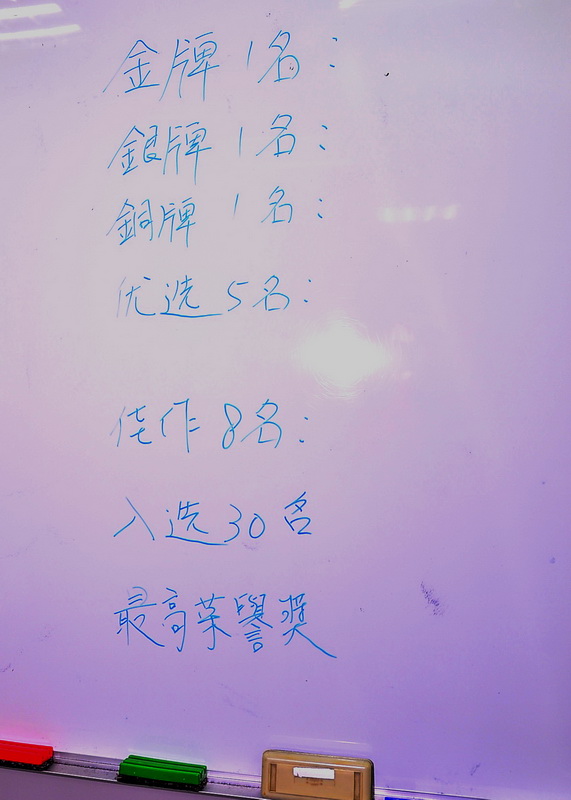 金牌 1名:
銀牌 1名:
銅牌 1名:
优选 5名:
佳作 8名:
入选 30名
最高荣譽奖